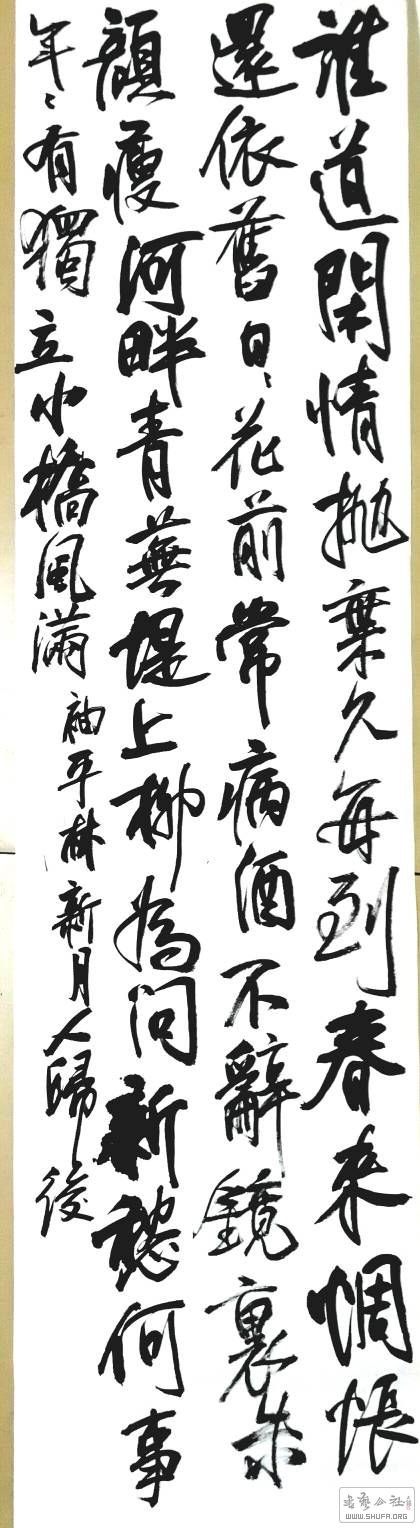 誰道閑情拋棄久每到春來惆悵
還依舊日〻花前常病酒不辭鏡裏朱
顏瘦河畔青蕪堤上柳為問新愁何事
年〻有獨立小橋風滿袖平林新月人歸後
書藝公社
WWW.SHUFA.ORG